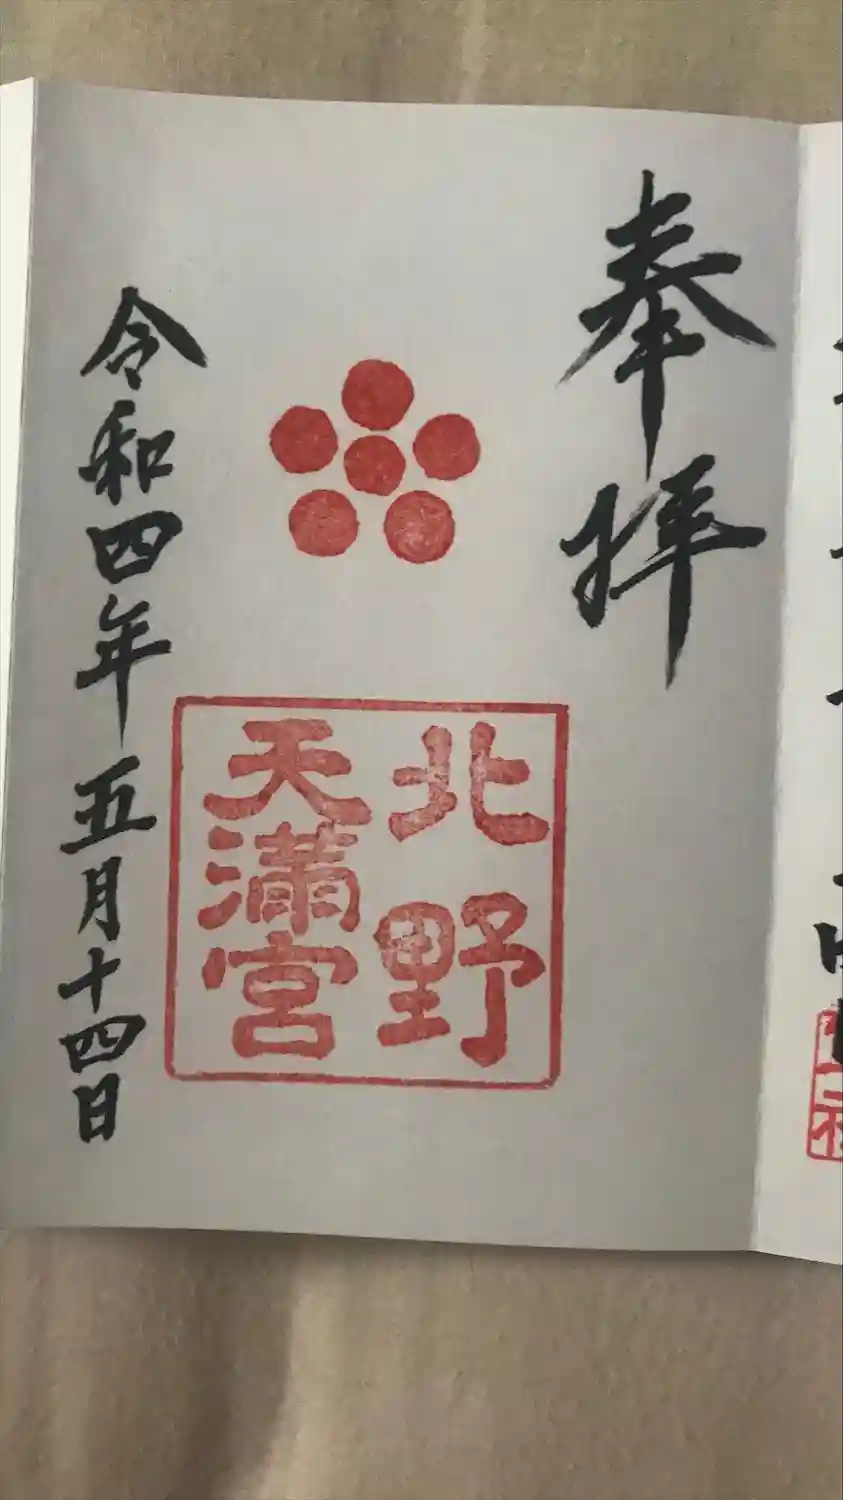 奉拝
北野
天満宮
令和四年五月十四日